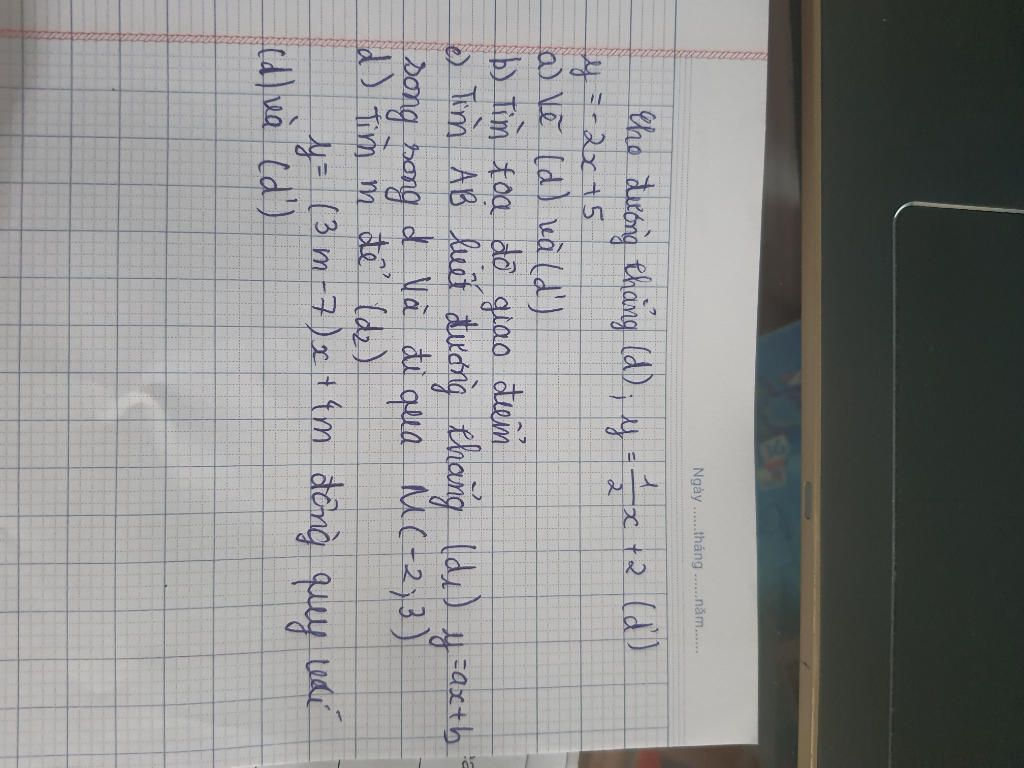 Ngày ....... tháng ....... năm.......
Cho đường thẳng (d); y = 1/2 x + 2 (d')
y = -2x + 5
a) Vẽ (d) và (d')
b) Tìm tọa độ giao điểm
c) Tìm AB biết đường thẳng (d₁) y = ax + b
song song d và đi qua M(-2;3)
d) Tìm m để (d₂)
y = (3m - 7)x + 4m đồng quy với
(d) và (d')